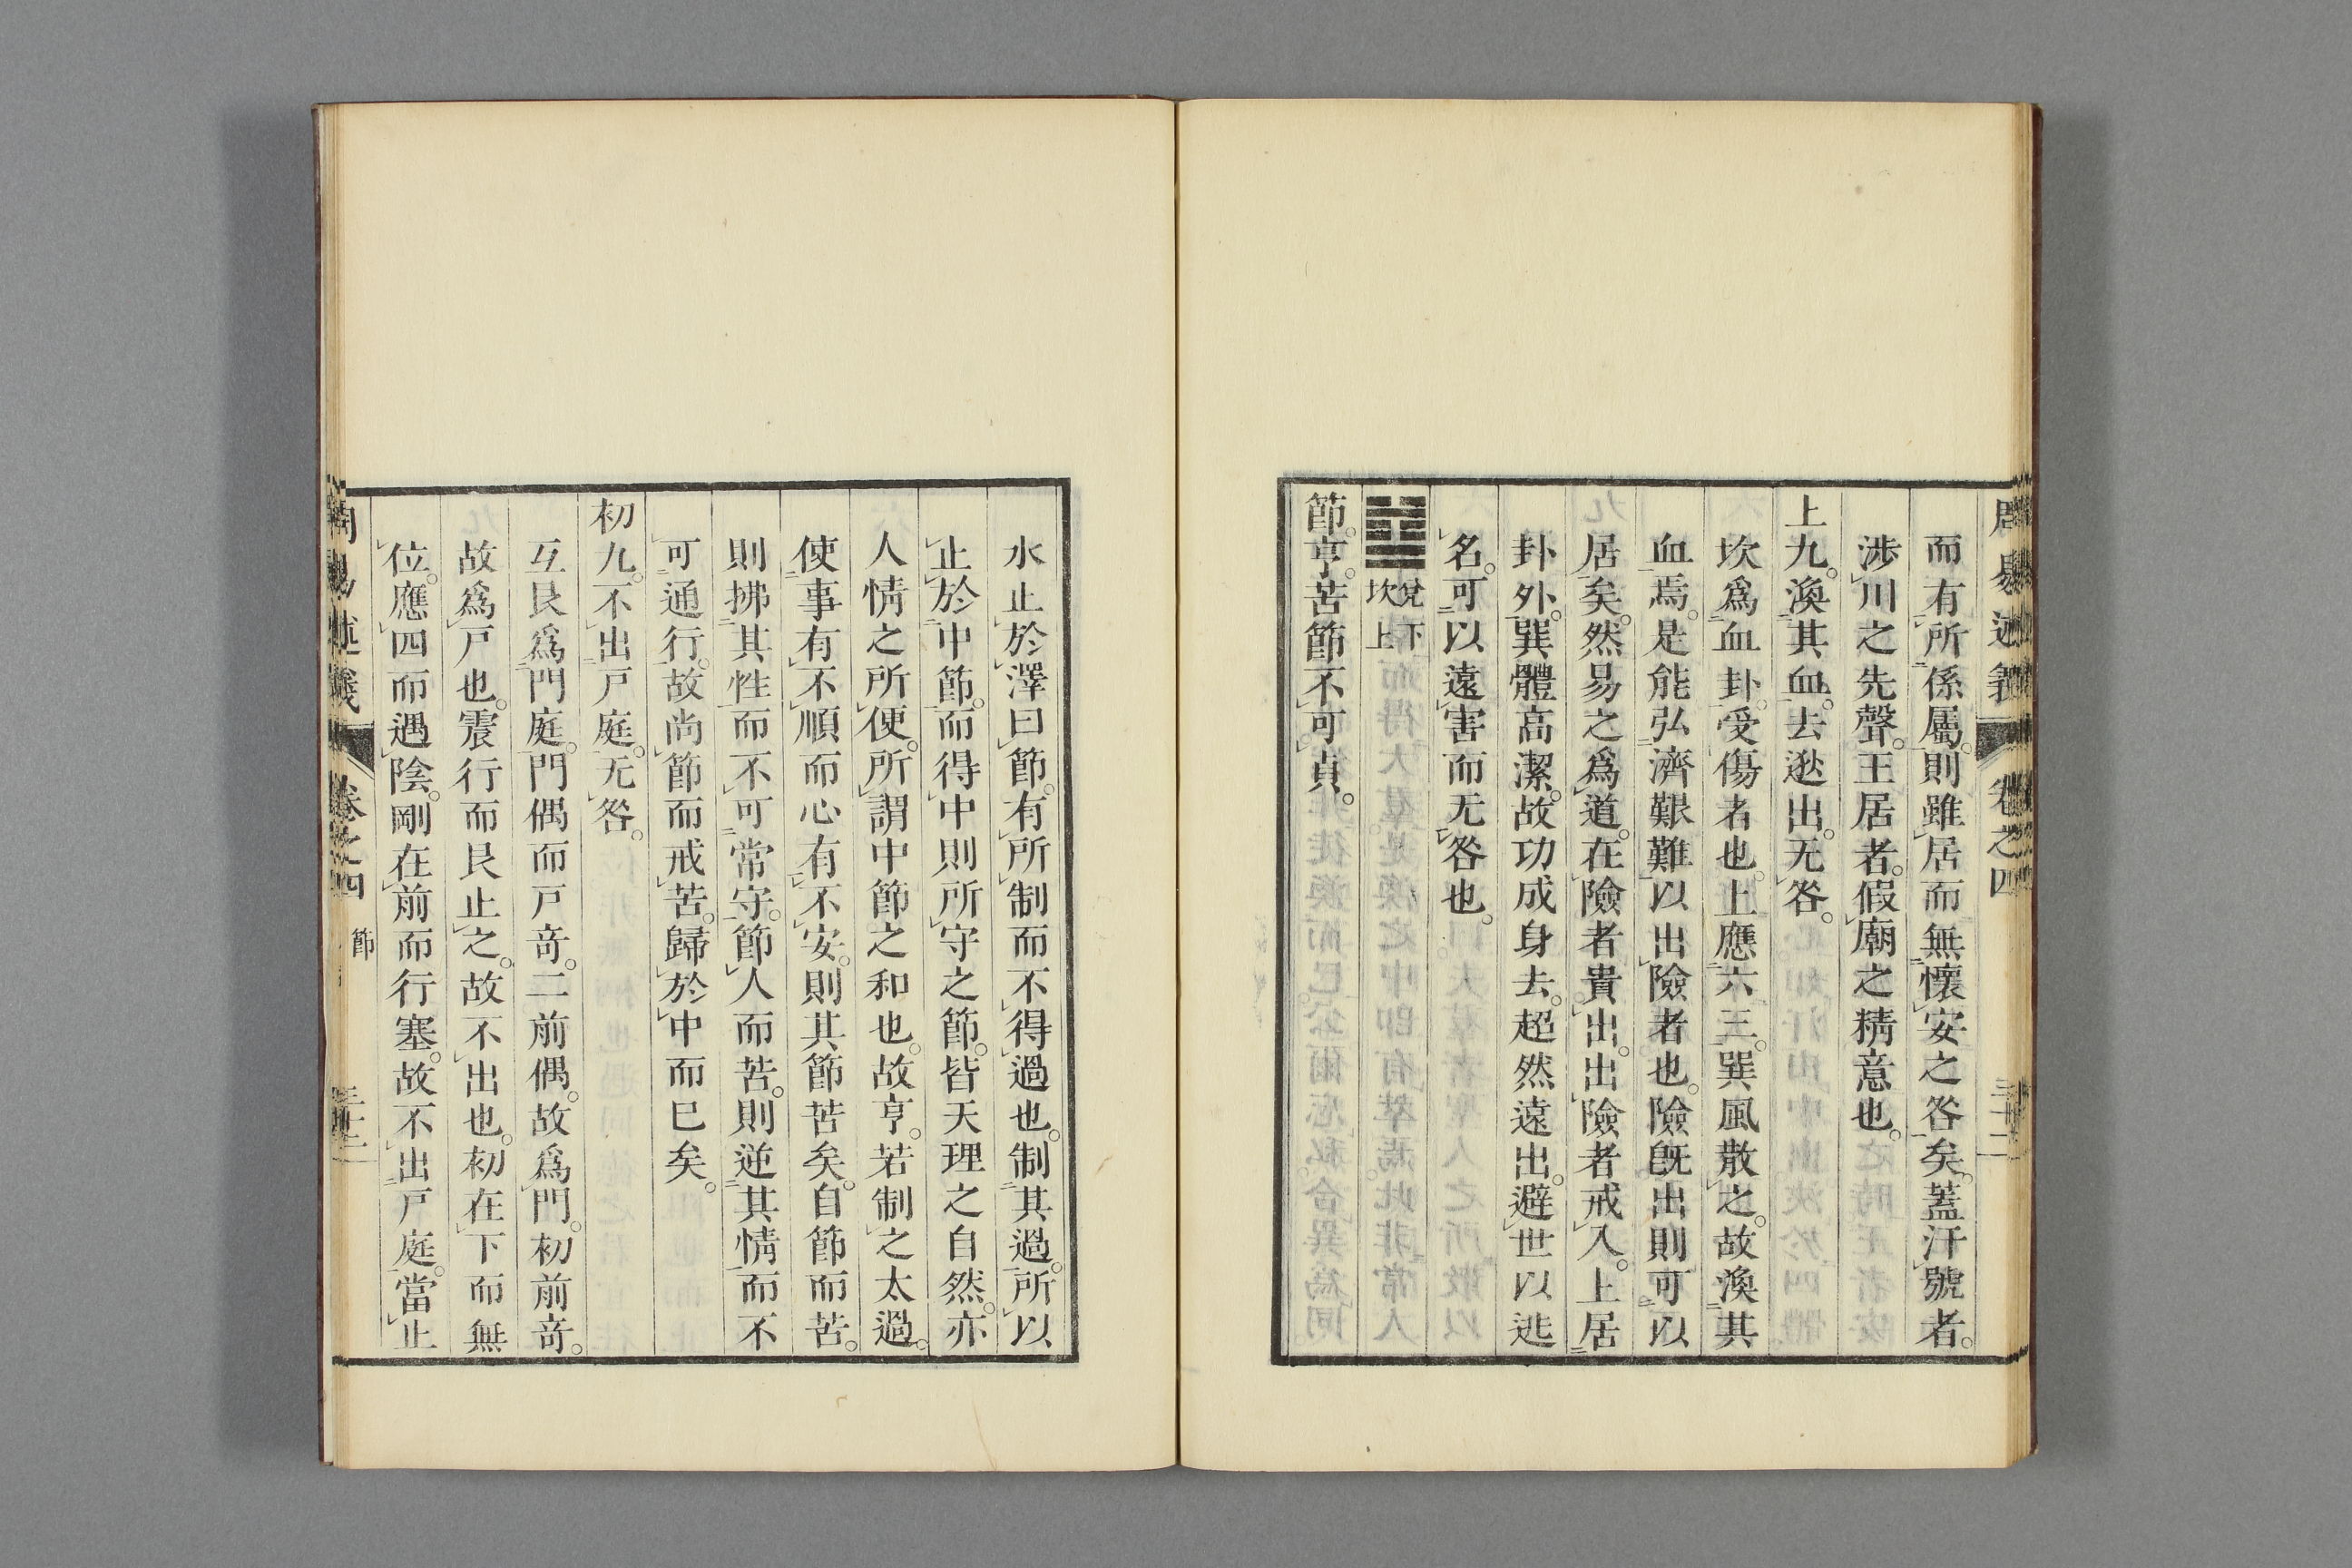 周易述義 卷之四 三十二
而有所係屬。則雖居而無懷安之咎矣。蓋汗號者。
渉川之先聲。王居者。假廟之精意也。
上九。渙其血。去逖出。无咎。
坎爲血卦。受傷者也。上應六三。巽風散之。故渙其
血焉。是能弘濟艱難以出險者也。險既出則可以
居矣。然易之爲道。在險者貴出。出險者戒入。上居
卦外。巽體高潔。故功成身去。超然遠出。避世以逃
名。可以遠害而无咎也。
䷻ 兌下坎上
節。亨。苦節不可貞。
水止於澤曰節。有所制而不得過也。制其過。所以
止於中節。而得中則所守之節。皆天理之自然。亦
人情之所便。所謂中節之和也。故亨。若制之太過。
使事有不順而心有不安。則其節苦矣。自節而苦。
則拂其性而不可常守。節人而苦。則逆其情而不
可通行。故尚節而戒苦。歸於中而已矣。
初九。不出戸庭。无咎。
互艮爲門庭。門偶而戸奇。二前偶。故爲門。初前奇。
故爲戸也。震行而艮止之。故不出也。初在下而無
位。應四而遇陰。剛在前而行塞。故不出戸庭。當止
周易述義 卷之四 節 三十二